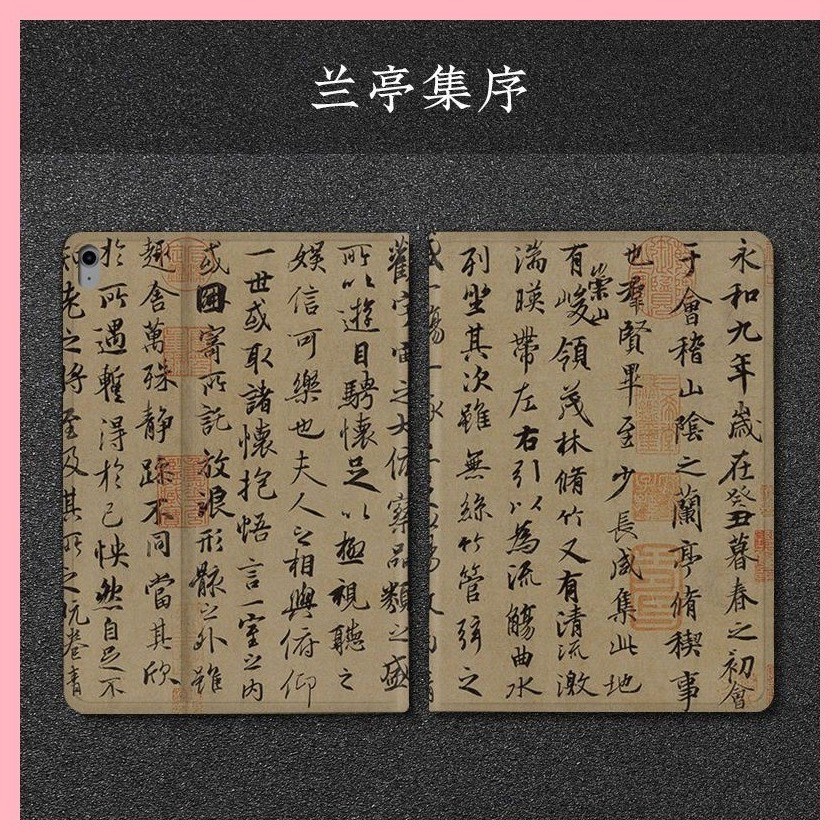 兰亭集序
永和九年歲在癸丑暮春之初會
于會稽山陰之蘭亭脩稧事
也羣賢畢至少長咸集此地
有崇山峻領茂林脩竹又有清流激
湍暎帶左右引以為流觴曲水
列坐其次雖無絲竹管弦之
觀宇宙之大俯察品類之盛
所以遊目騁懷足以極視聽之
娛信可樂也夫人之相與俯仰
一世或取諸懷抱悟言一室之內
或因寄所託放浪形骸之外雖
趣舍萬殊静躁不同當其欣
於所遇暫得於己怏然自足不
知老之將至及其所之